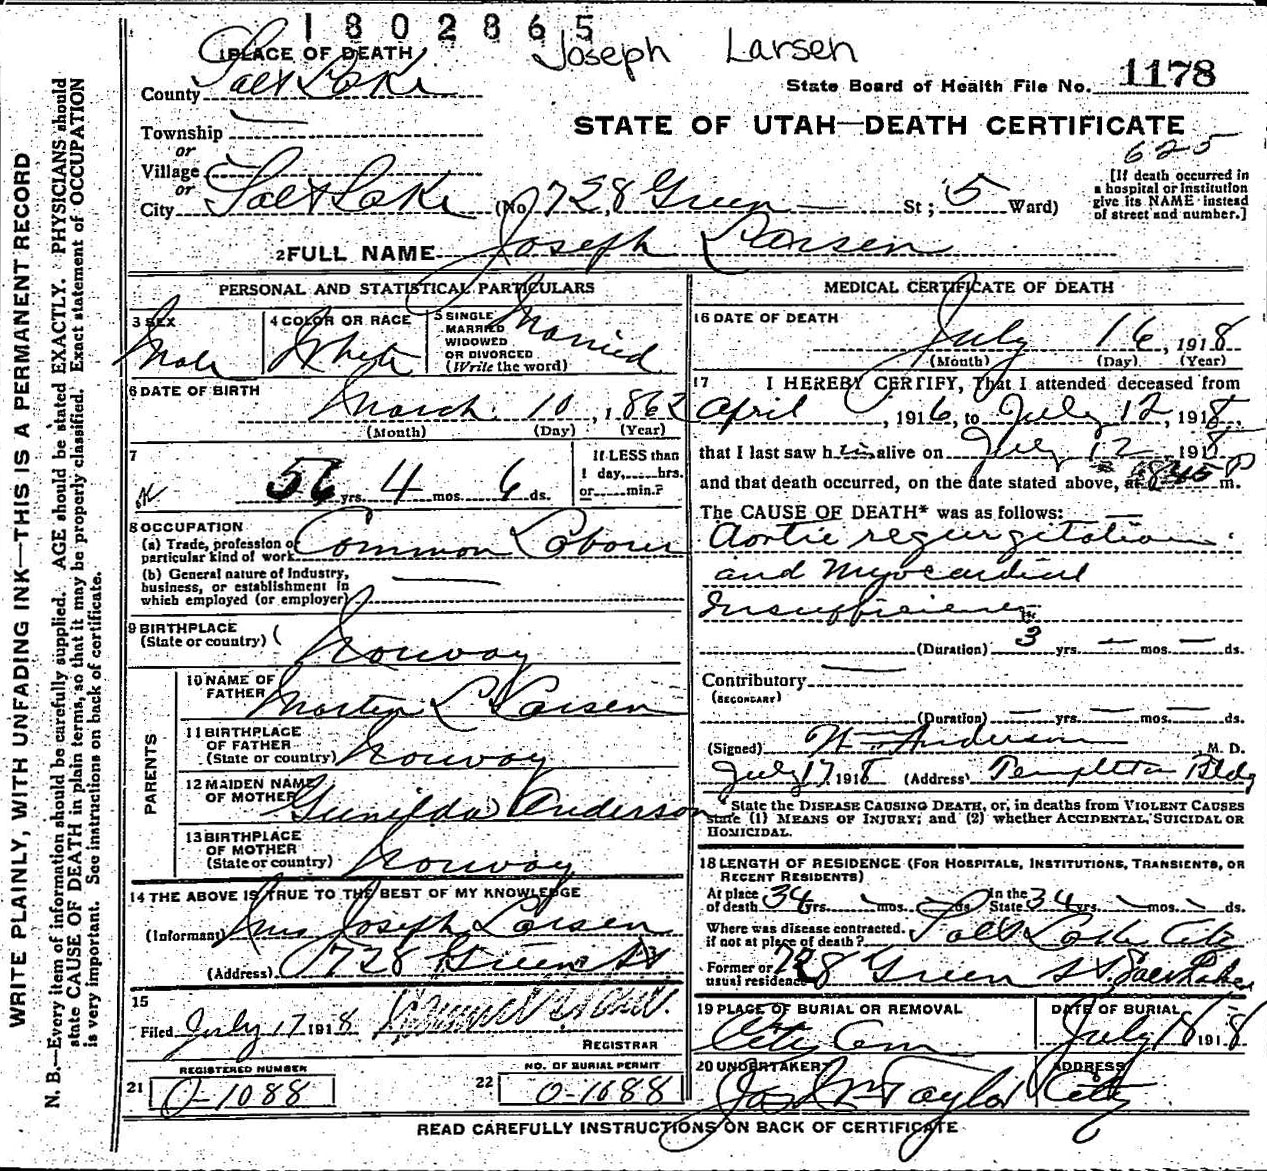 1802865
Joseph Larsen
1 PLACE OF DEATH
State Board of Health File No. 1178
County Salt Lake
STATE OF UTAH—DEATH CERTIFICATE
Township
or
625
Village
or
City Salt Lake (No. 728 Green St; 5 Ward)
[If death occurred in
a hospital or institution
give its NAME instead
of street and number.]
2 FULL NAME Joseph Larsen
PERSONAL AND STATISTICAL PARTICULARS
3 SEX
Male
4 COLOR OR RACE
White
5 SINGLE
MARRIED
WIDOWED
OR DIVORCED
(Write the word)
Married
6 DATE OF BIRTH
March 10, 1862
(Month) (Day) (Year)
7
56 yrs. 4 mos. 6 ds.
If LESS than
1 day, hrs.
or min.?
8 OCCUPATION
(a) Trade, profession or
particular kind of work Common Laborer
(b) General nature of Industry,
business, or establishment in
which employed (or employer)
9 BIRTHPLACE
(State or country) Norway
PARENTS
10 NAME OF
FATHER Morten L Larsen
11 BIRTHPLACE
OF FATHER
(State or country) Norway
12 MAIDEN NAME
OF MOTHER Gunilda Anderson
13 BIRTHPLACE
OF MOTHER
(State or country) Norway
14 THE ABOVE IS TRUE TO THE BEST OF MY KNOWLEDGE
(Informant) Mrs Joseph Larsen
(Address) 728 Green St
15
Filed July 17 1918
REGISTRAR
REGISTERED NUMBER
21 O-1088
NO. OF BURIAL PERMIT
22 O-1088
MEDICAL CERTIFICATE OF DEATH
16 DATE OF DEATH
July 16, 1918
(Month) (Day) (Year)
17 I HEREBY CERTIFY, That I attended deceased from
April, 1916, to July 12, 1918,
that I last saw him alive on July 12 1918
and that death occurred, on the date stated above, at 845 P m.
The CAUSE OF DEATH* was as follows:
Aortic regurgitation
and Myocardial
Insufficiency
(Duration) 3 yrs. — mos. — ds.
Contributory
(SECONDARY)
(Duration) — yrs. — mos. — ds.
(Signed) Wm Anderson, M. D.
July 17 1918 (Address) Templeton Bldg
*State the DISEASE CAUSING DEATH, or, in deaths from VIOLENT CAUSES
state (1) MEANS OF INJURY; and (2) whether ACCIDENTAL, SUICIDAL OR
HOMICIDAL.
18 LENGTH OF RESIDENCE (FOR HOSPITALS, INSTITUTIONS, TRANSIENTS, OR
RECENT RESIDENTS)
At place
of death 34 yrs. — mos. — ds.
In the
State 34 yrs. — mos. — ds.
Where was disease contracted.
if not at place of death? Salt Lake City
Former or
usual residence 728 Green St. Salt Lake
19 PLACE OF BURIAL OR REMOVAL
City Cem
DATE OF BURIAL
July 18 1918
20 UNDERTAKER
Jos Wm Taylor
ADDRESS
City
READ CAREFULLY INSTRUCTIONS ON BACK OF CERTIFICATE
WRITE PLAINLY, WITH UNFADING INK—THIS IS A PERMANENT RECORD
N. B.—Every item of information should be carefully supplied. AGE should be stated EXACTLY. PHYSICIANS should
state CAUSE OF DEATH in plain terms, so that it may be properly classified. Exact statement of OCCUPATION
is very important. See instructions on back of certificate.